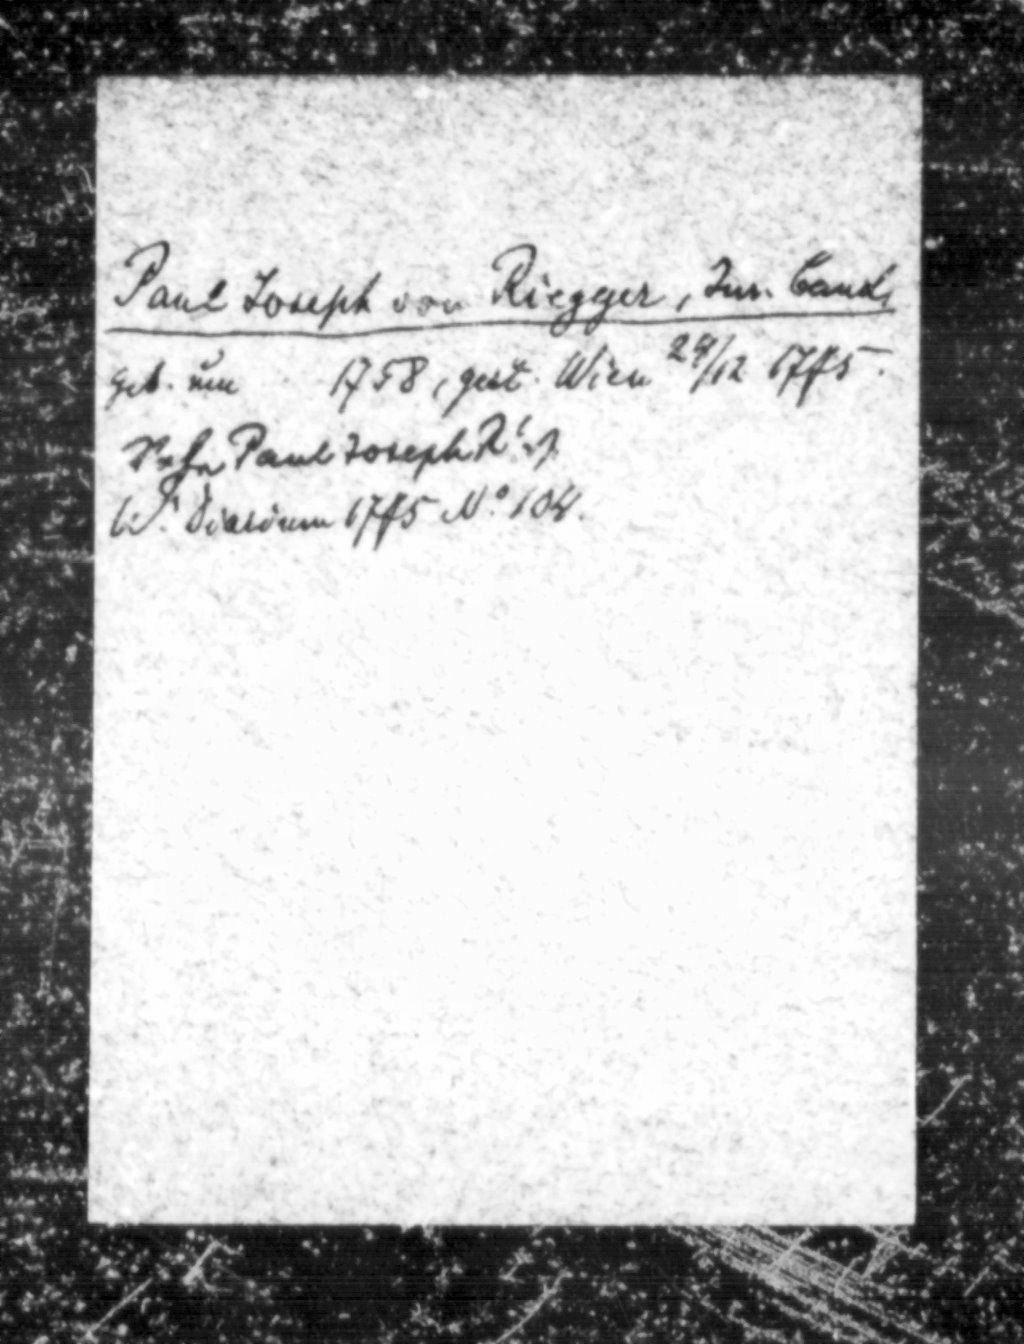 Paul Joseph von Riegger, Jur. Cand.
geb. um 1758, gest. Wien 24/12 1775.
Sohn Paul Joseph R's.
W. Diarium 1775 No. 104.